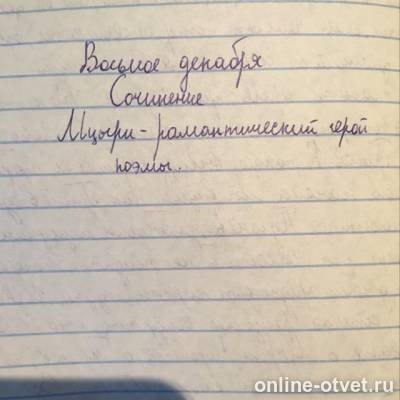 Восьмое декабря
Сочинение
Мцыри - романтический герой
поэмы.
online-otvet.ru